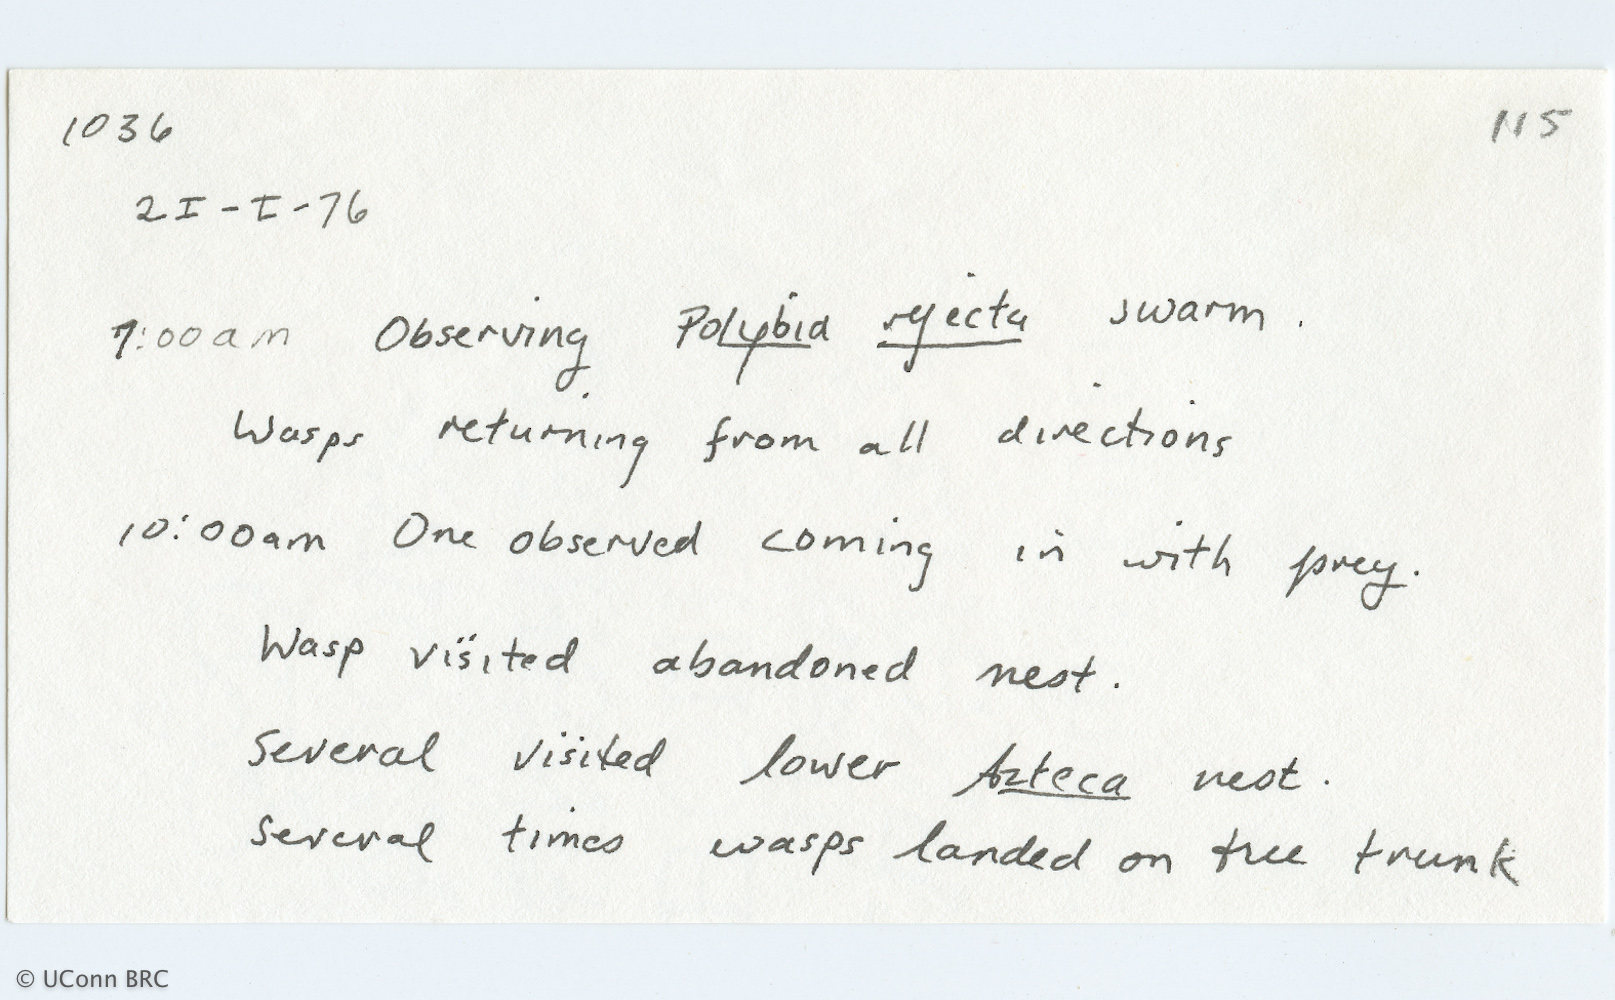 1036 115
2I-I-76
7:00am Observing Polybia rejecta swarm.
Wasps returning from all directions
10:00am One observed coming in with prey.
Wasp visited abandoned nest.
Several visited lower Azteca nest.
Several times wasps landed on tree trunk
© UConn BRC